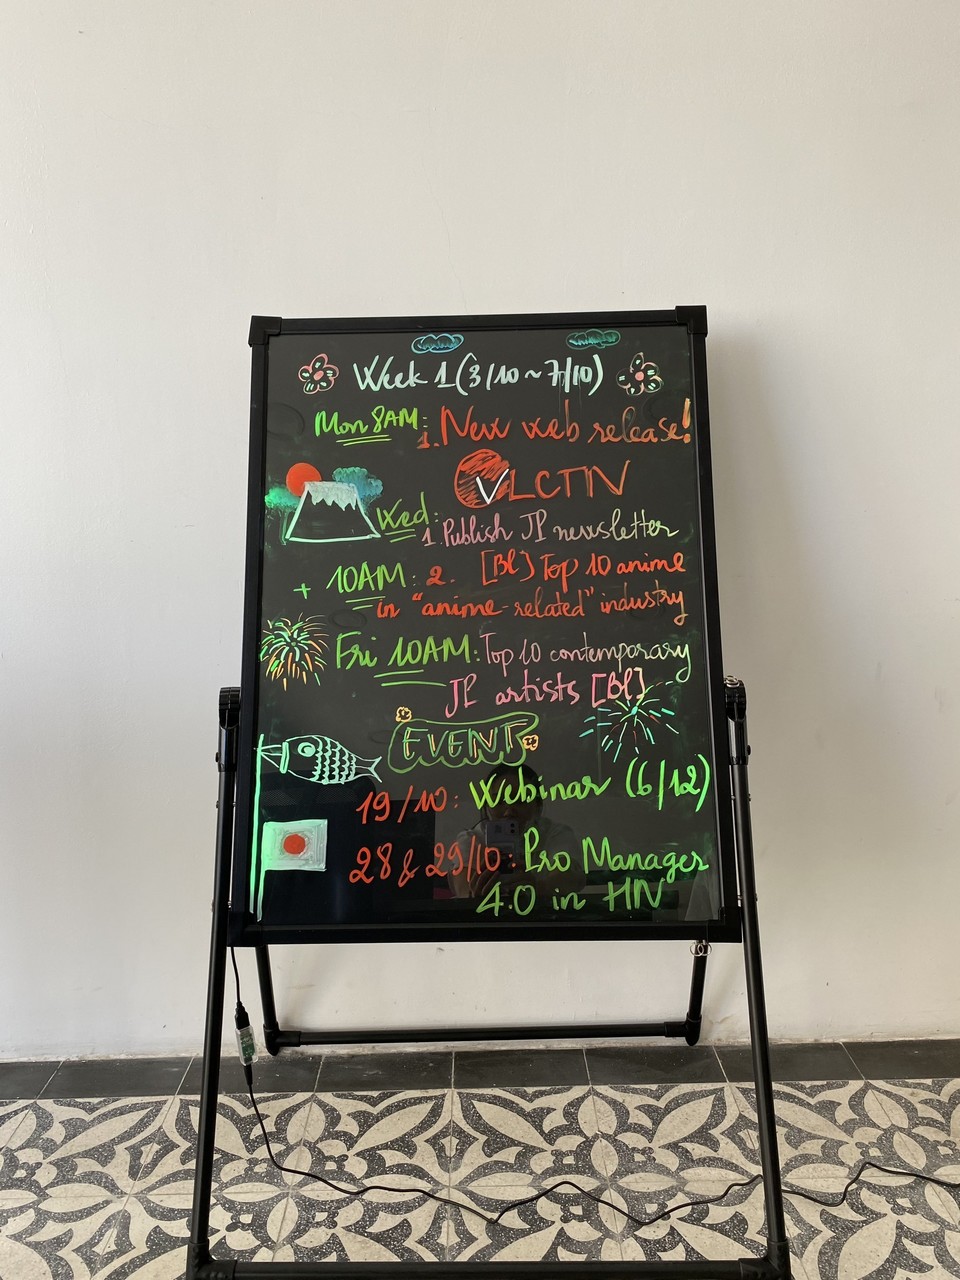 Week 1 (3/10 ~ 7/10)
Mon 8AM: 1. New web release!
VLCTIV
Wed: 1. Publish JP newsletter
+ 10AM: 2. [Bl] Top 10 anime
in "anime-related" industry
Fri 10AM: Top 10 contemporary
JP artists [Bl]
EVENT
19/10: Webinar (6/12)
28 & 29/10: Pro Manager
4.0 in HN